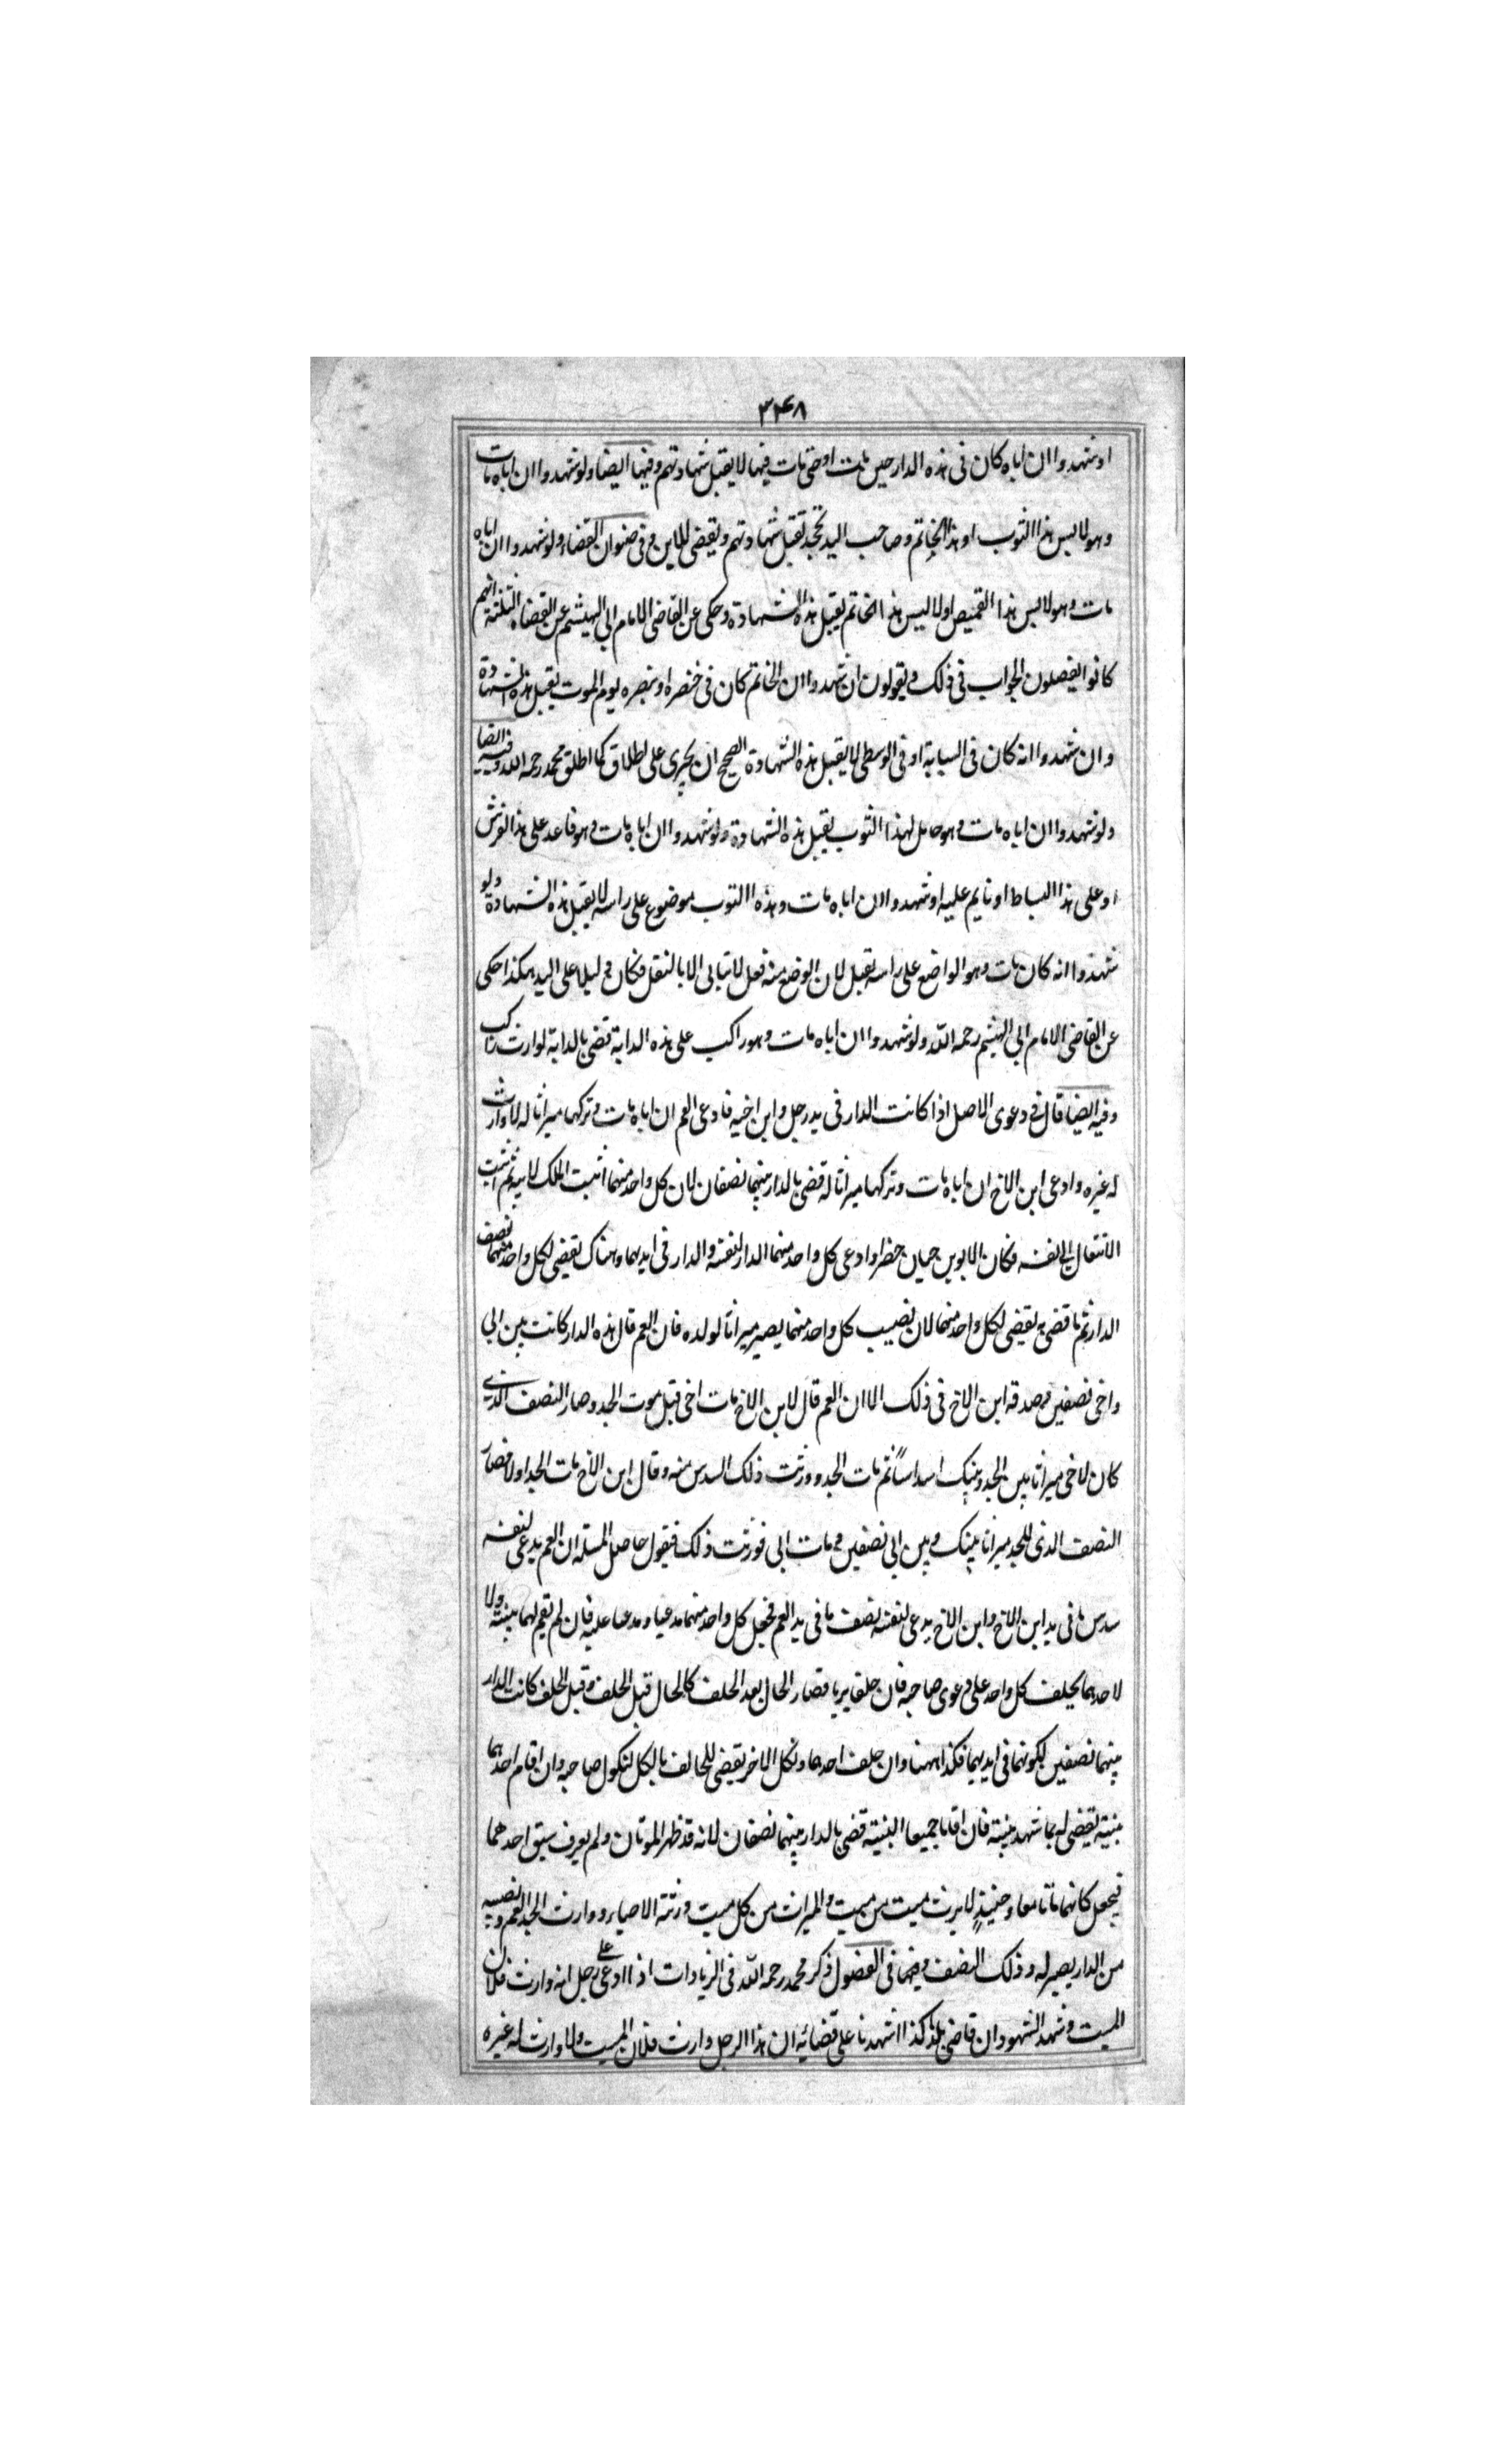 ٣٣٤٨
او شهدوا ان اباه كان فى هذه الدار حين مات او حتى مات فيها لا يقبل شهادتهم وفيها ايضا ولو شهدوا ان اباه مات
وهو لابس هذا الثوب او هذا الخاتم وصاحب اليد يجحد تقبل شهادتهم ويقضى للابن وفى صنوان القضاء ولو شهدوا ان اباه
مات وهو لابس هذا القميص او لابس هذا الخاتم يقبل هذه الشهادة وحكى عن القاضى الامام ابى الهيثم عن القضاة الثلثة انهم
كانوا يفصلون الجواب فى ذلك ويقولون ان شهدوا ان الخاتم كان فى خنصره او بنصره يوم الموت يقبل هذه الشهادة
وان شهدوا انه كان فى السبابة او فى الوسطى لا يقبل هذه الشهادة الصحيح ان يجرى على اطلاق كما اطلق محمد رحمه الله وفيه ايضا
ولو شهدوا ان اباه مات وهو حامل لهذا الثوب يقبل هذه الشهادة ولو شهدوا ان اباه مات وهو قاعد على هذا الفرش
او على هذا البساط او نايم عليه او شهدوا ان اباه مات وهذه الثوب موضوع على راسه لا يقبل هذه الشهادة ولو
شهدوا انه كان مات وهو الواضع على راسه تقبل لان الوضع منه فعل لا يتاتى الا بالنقل فكان دليلا على اليد هكذا حكى
عن القاضى الامام ابى الهيثم رحمه الله ولو شهدوا ان اباه مات وهو راكب على هذه الدابة قضى بالدابة لوارث راكب
وفيه ايضا قال فى دعوى الاصل اذا كانت الدار فى يد رجل وابن اخيه فادعى العم ان اباه مات وتركها ميراثا له لا وارث
له غيره وادعى ابن الاخ ان اباه مات وتركها ميراثا له قضى بالدار بينهما نصفان لان كل واحد منهما اثبت الملك لابيه ثم اثبت
الانتقال الى نفسه فكان الابوين حيان حضرا وادعى كل واحد منهما الدار لنفسه والدار فى ايديهما وهناك يقضى لكل واحد منهما نصف
الدار ثم ما قضى به يقضى لكل واحد منهما لان نصيب كل واحد منهما يصير ميراثا لولده فان العم قال هذه الدار كانت بين ابى
واخى نصفين وصدقه ابن الاخ فى ذلك الا ان العم قال لابن الاخ مات اخى قبل موت الجد وصار النصف الذى
كان لاخى ميراثا بين الجد وبينك اسداساً ثم مات الجد وورثت ذلك السدس منه وقال ابن الاخ مات الجد اولا فصار
النصف الذى للجد ميراثا بينك وبين ابى نصفين ومات ابى فورثت ذلك فيقول حاصل المسئلة ان العم يدعى لنفسه
سدس ما فى يد ابن الاخ وابن الاخ يدعى لنفسه نصف ما فى يد العم فجعل كل واحد منهما مدعيا ومدعا عليه فان لم تقم لهما بينة ولا
لاحدهما يحلف كل واحد على دعوى صاحبه فان حلفا يريا فصار الحال بعد الحلف كالحال قبل الحلف وقبل الحلف كانت الدار
بينهما نصفين لكونهما فى ايديهما فكذا ههنا وان حلف احدهما ونكل الاخر يقضى للحالف بالكل لنكول صاحبه وان اقام احدهما
بينة يقضى له بما شهد بينته فان اقاما جميعا البينة قضى بالدار بينهما نصفان لانه قد ظهر الموتان ولم يعرف سبق احدهما
فيجعل كانهما ماتا معا وحنيئذٍ لا يرث ميت من ميت والميراث من كل ميت ورثته الاحياء ووارث الجد العم ونصيبه
من الدار يصير له وذلك النصف وفيها فى الفصول ذكر محمد رحمه الله فى الزيادات اذا ادعى على رجل انه وارث فلان
الميت وشهد الشهود ان قاضى بلد كذا اشهدنا على قضائه ان هذا الرجل وارث فلان الميت ولا وارث له غيره